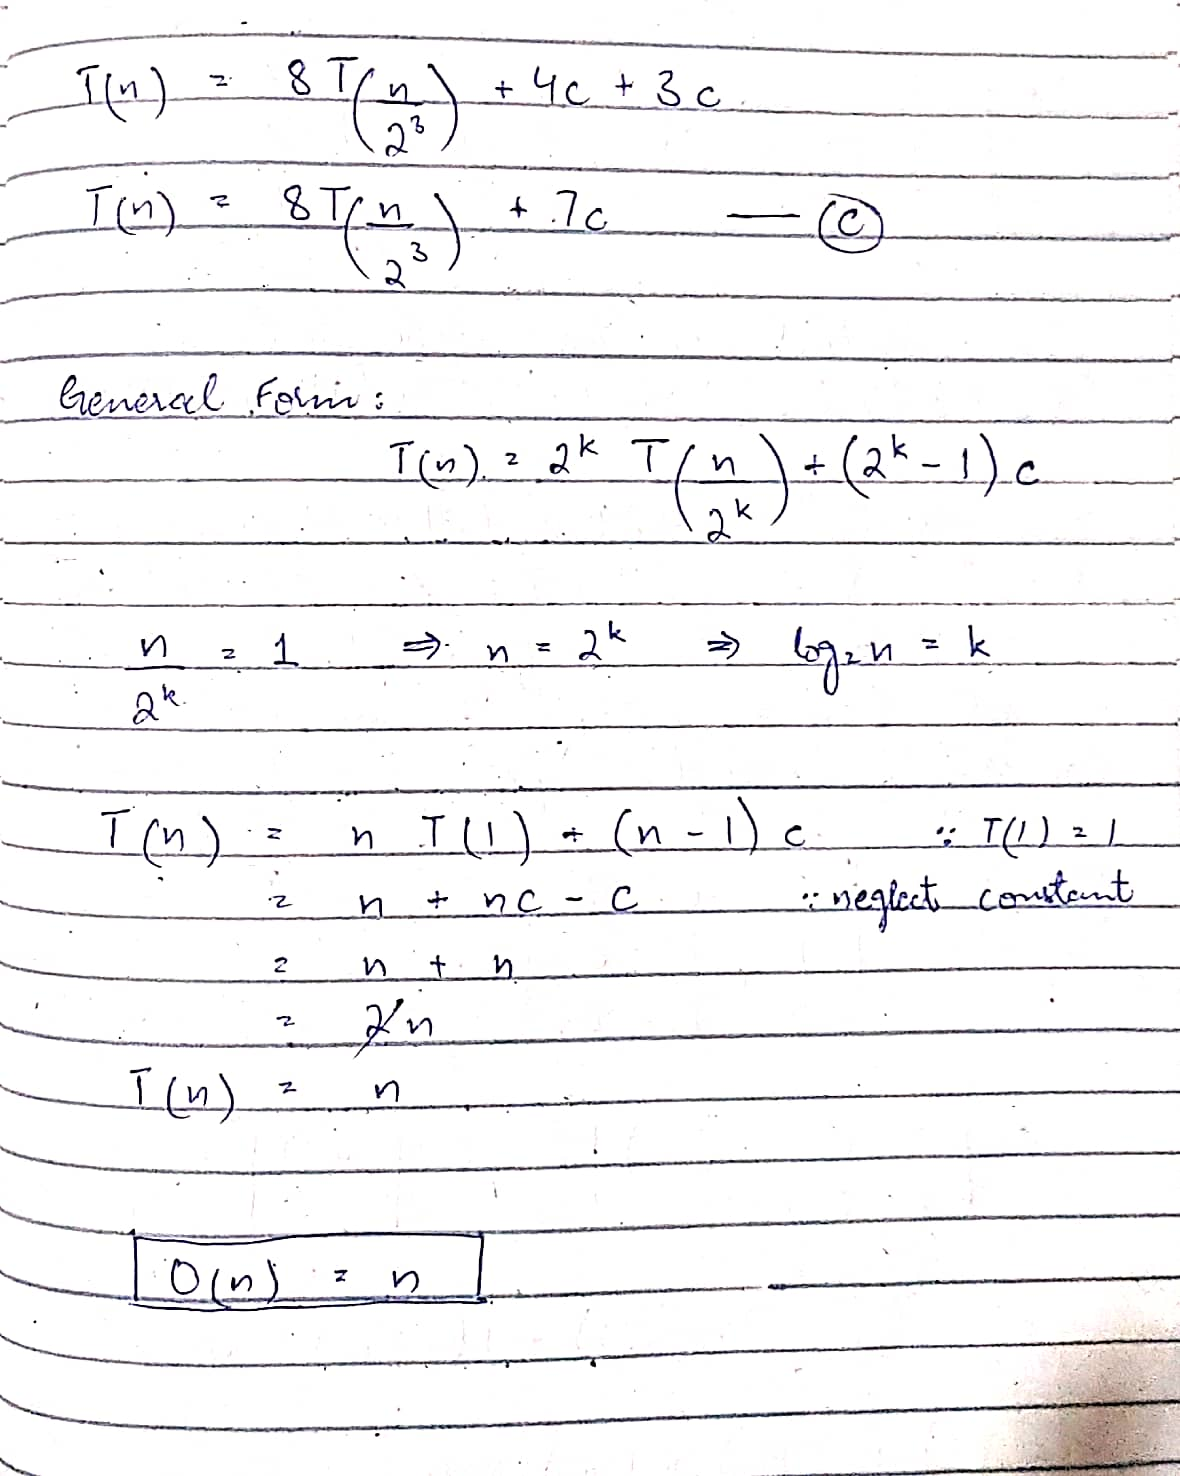 T(n) = 8T(n/2³) + 4c + 3c
T(n) = 8T(n/2³) + 7c — (C)
General Form:
T(n) = 2ᵏ T(n/2ᵏ) + (2ᵏ - 1) c
n/2ᵏ = 1 ⇒ n = 2ᵏ ⇒ log₂n = k
T(n) = n T(1) + (n - 1) c ∵ T(1) = 1
= n + nc - c ∵ neglect constant
= n + n
= 2n
T(n) = n
O(n) = n